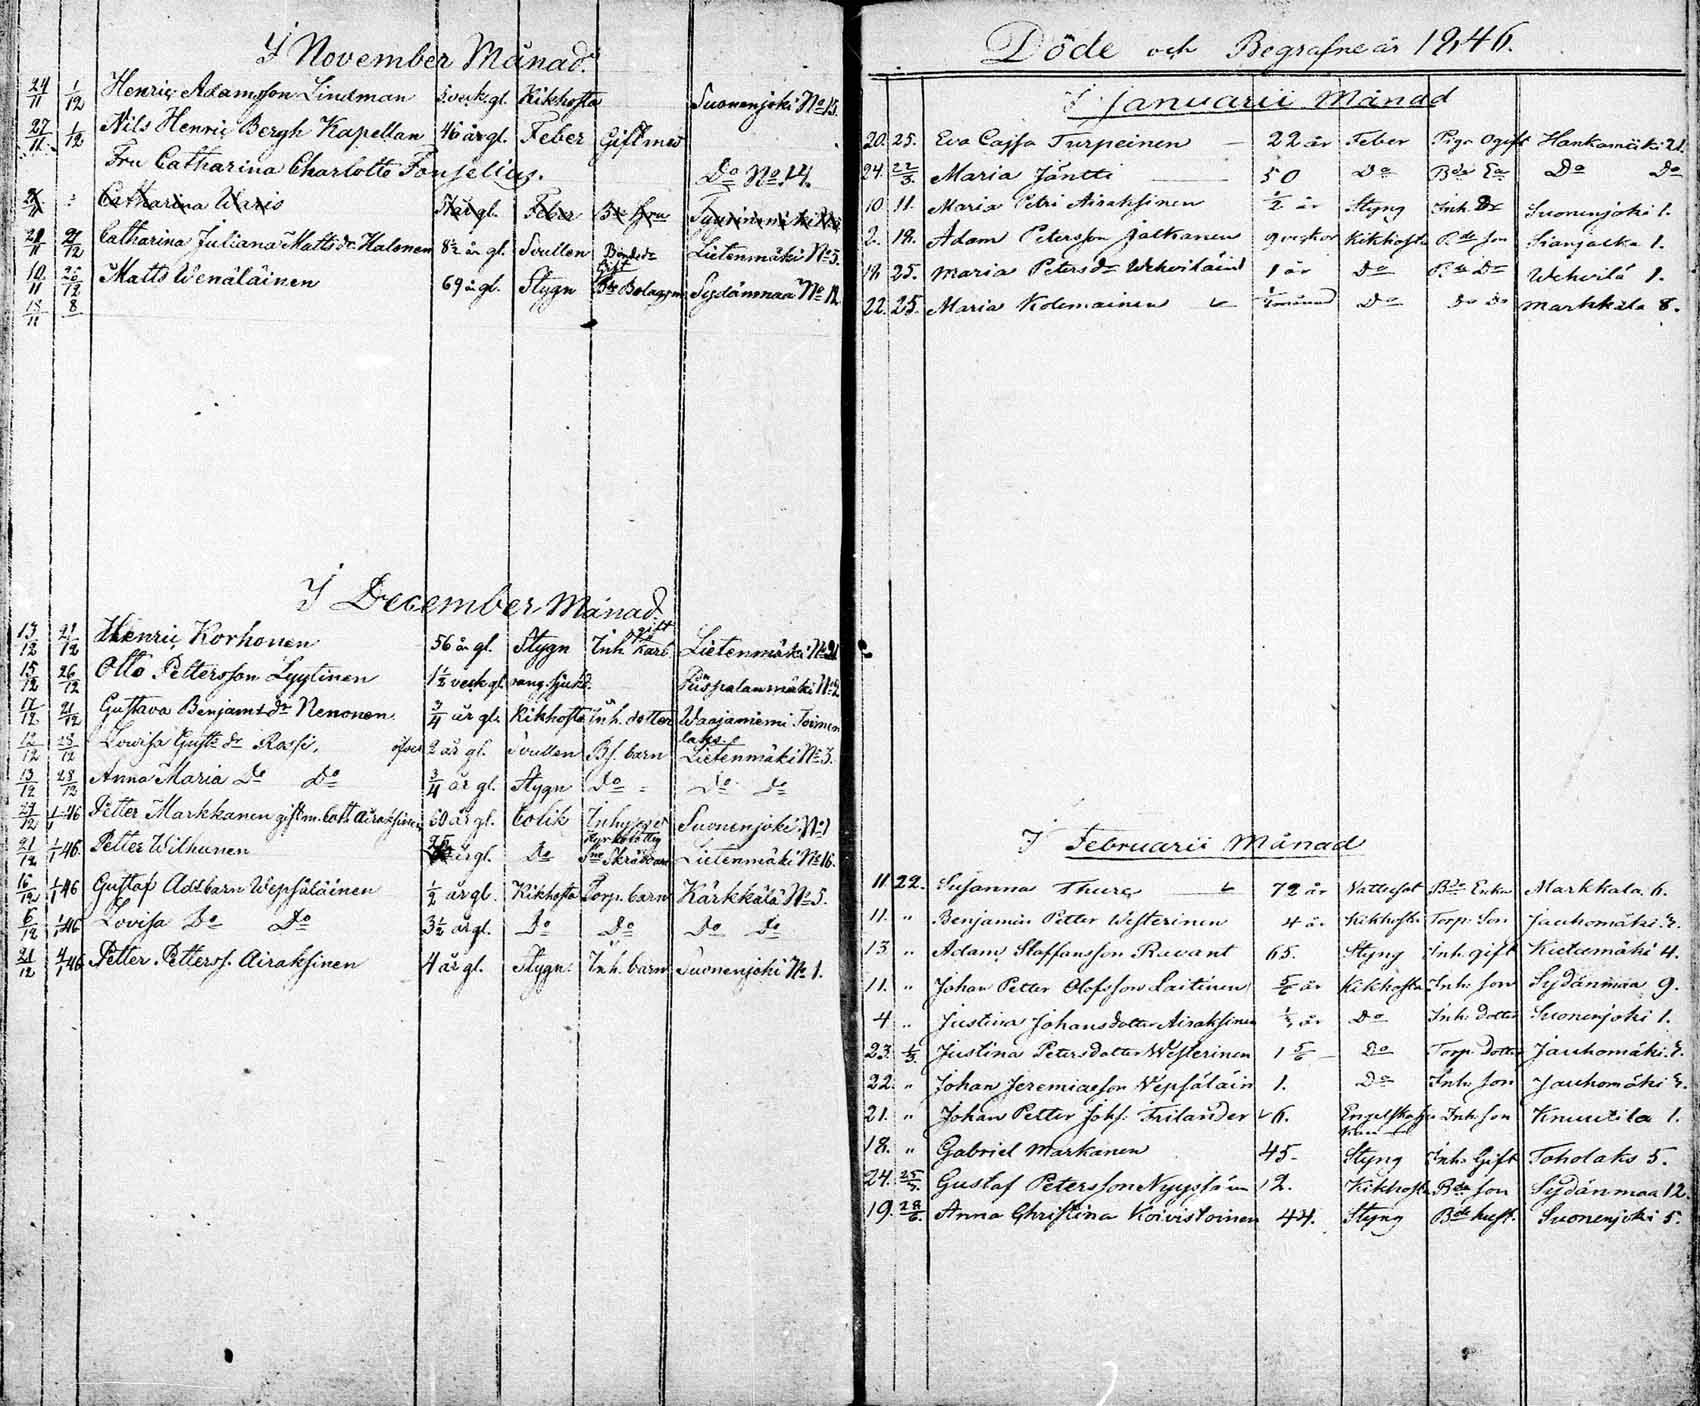 I November Månad.
24/11 1/12 Henric Adamsson Lindman 5 veck. gl. Kikhosta Suonenjoki No 15.
27/11 1/12 Nils Henric Bergh Kapellan 46 år gl. Feber Gift med
Fru Catharina Charlotta Fonselius. Do No 14.
Catharina Waris år gl. Feber
21/12 Catharina Juliana Matts dr Halonen 8½ år gl. Svullen Bonde dr Lietenmäki No 3.
10/11 26/12 Matts Wenäläinen 69 år gl. Stygn gift Bolagsm Sydänmaa No 12.
18/11 8
I December Månad.
13/12 21/12 Henric Korhonen 56 år gl. Stygn Inh. gift Karl Lietenmäki No 21
15/12 26/12 Otto Pettersson Lyytinen 1½ veck gl. Piispalanmäki No 2.
21/12 Gustava Benjams dr Nenonen 3/4 år gl. Kikhosta Inh. dotter Waajaniemi Toimen
laks.
12/12 28/12 Lovisa Gust. dr Rossi. öfver 2 år gl. Svullen Bf. barn Lietenmäki No 3.
13/12 28/12 Anna Maria Do Do 3/4 år gl. Stygn Do Do Do
27/12 1/1 46 Petter Markkanen gift m. Cath Airaksinen 60 år gl. Colik Inhyses Suonenjoki No 1
21/12 1/1 46. Petter Wilhunen år gl. Do Kyrkofattig Sne Skräddare Lietenmäki No 16.
16/12 1/1 46 Gustaf Ads barn Wepsäläinen ½ år gl. Kikhosta Torp. barn Kärkkälä No 5.
6/12 1/1 46 Lovisa Do Do 3½ år gl. Do Do Do Do
21/12 4/1 46 Petter Petterss. Airaksinen 4 år gl. Stygn. Inh. barn Suonenjoki No 1.
Döde och Begrafne år 1846.
I Januarii Månad
20. 25. Eva Cajsa Turpeinen — 22 år Feber Piga Ogift Hankamäki 21.
24. 22/3. Maria Jäntti — 50 Do Bde Ea Do Do
10 11. Maria Petri Airaksinen ½ år Styng Inh. Dr Suonenjoki 1.
2. 18. Adam Petersson Jalkanen 9 veckor Kikhosta Bde son Sianjalka 1.
18 25. Maria Peters dr Wehviläin 1 år Do Bde Dr Wehvilä 1.
22. 25. Maria Kolemainen månad Do Do Do Markkala 8.
I Februarii Månad
11 22. Susanna Thure 72 år Vattusot Bde Enka Markkala 6.
11. " Benjamin Petter Westerinen 4 år Kikhosta Torp. Son Jauhomäki 2.
13 " Adam Staffansson Ruvant 65. Styng Inh. gift Kutumäki 4.
11. " Johan Petter Olofsson Laitinen 5/6 år Kikhosta Inh. Son Sydänmaa 9.
4 " Justina Johansdotter Airaksinen ½ år Do Inh. Dotter Suonenjoki 1.
23. 1/3. Justina Petersdotter Westerinen 1 5/6 — Do Torp. Dotter Jauhomäki 2.
22. " Johan Jeremiaeson Vepsäläin 1. Do Inh. Son Jauhomäki 2.
21. " Johan Petter Johs. Frilander 6. Engelska Inh. Son Knuutila 1.
18. " Gabriel Markanen 45. Styng Inh. Gift Toholaks 5.
24. 25/3. Gustaf Petersson Nyyssöin 2. Kikhosta Bde son Sydänmaa 12.
19. 28/6. Anna Christina Koivistoinen 44. Styng Bde hust. Suonenjoki 5.